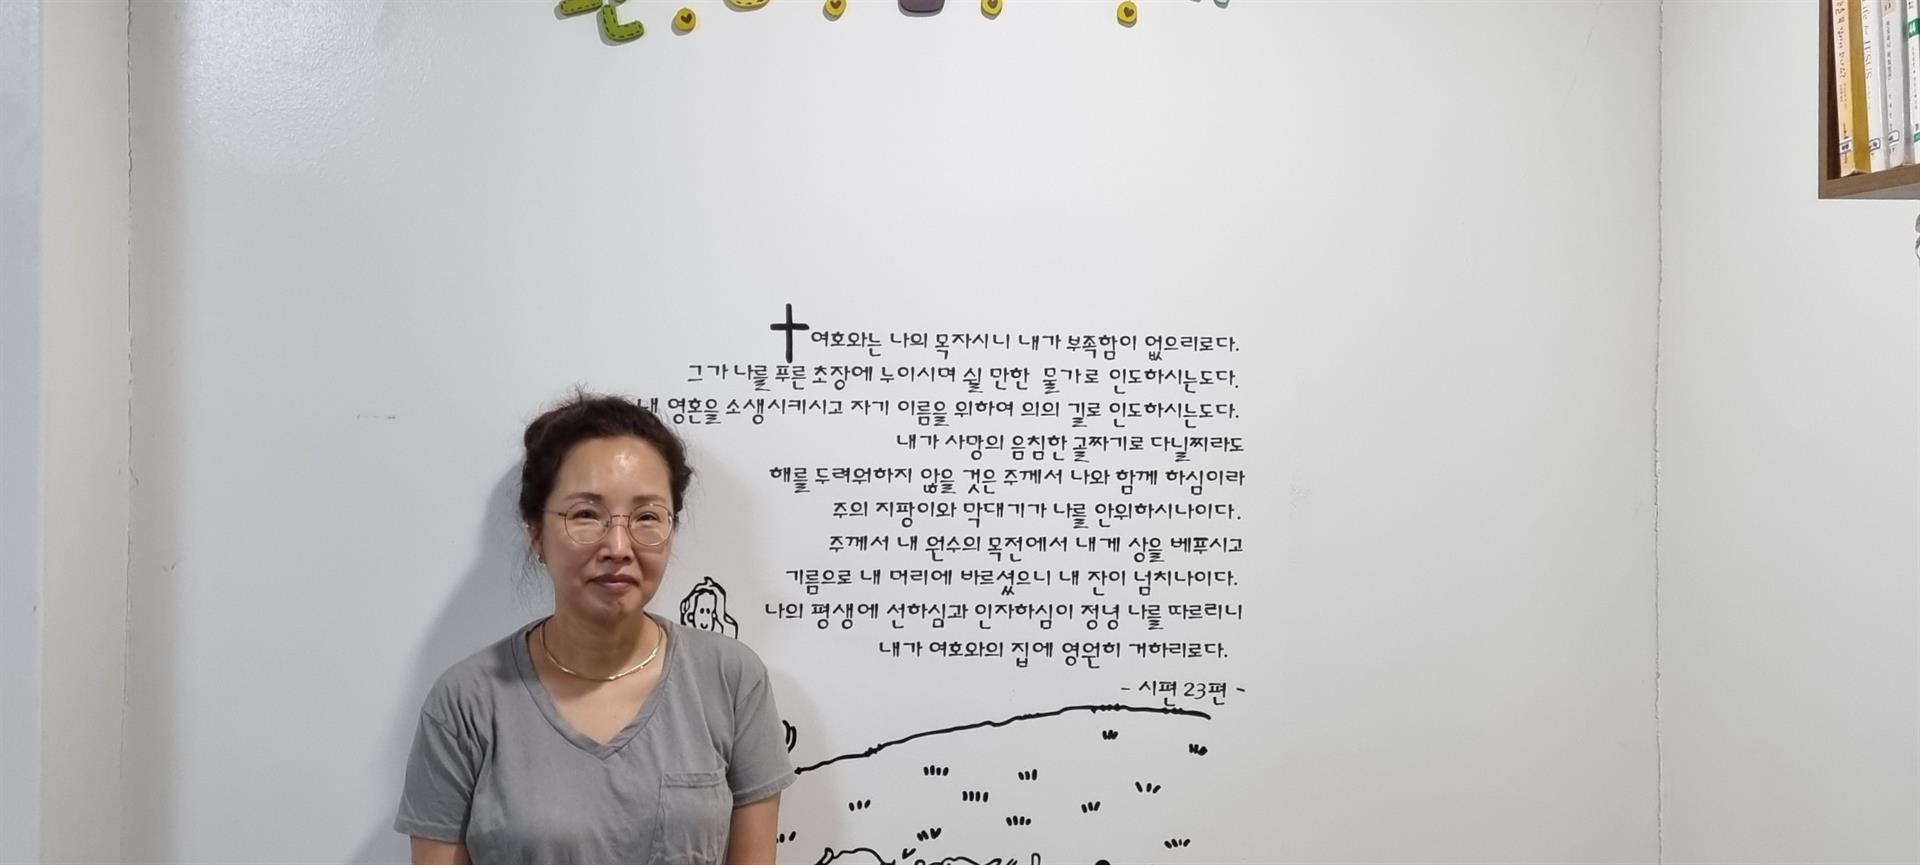 여호와는 나의 목자시니 내가 부족함이 없으리로다.
그가 나를 푸른 초장에 누이시며 쉴 만한 물가로 인도하시는도다.
내 영혼을 소생시키시고 자기 이름을 위하여 의의 길로 인도하시는도다.
내가 사망의 음침한 골짜기로 다닐찌라도
해를 두려워하지 않을 것은 주께서 나와 함께 하심이라
주의 지팡이와 막대기가 나를 안위하시나이다.
주께서 내 원수의 목전에서 내게 상을 베푸시고
기름으로 내 머리에 바르셨으니 내 잔이 넘치나이다.
나의 평생에 선하심과 인자하심이 정녕 나를 따르리니
내가 여호와의 집에 영원히 거하리로다.
- 시편 23편 -
JESUS